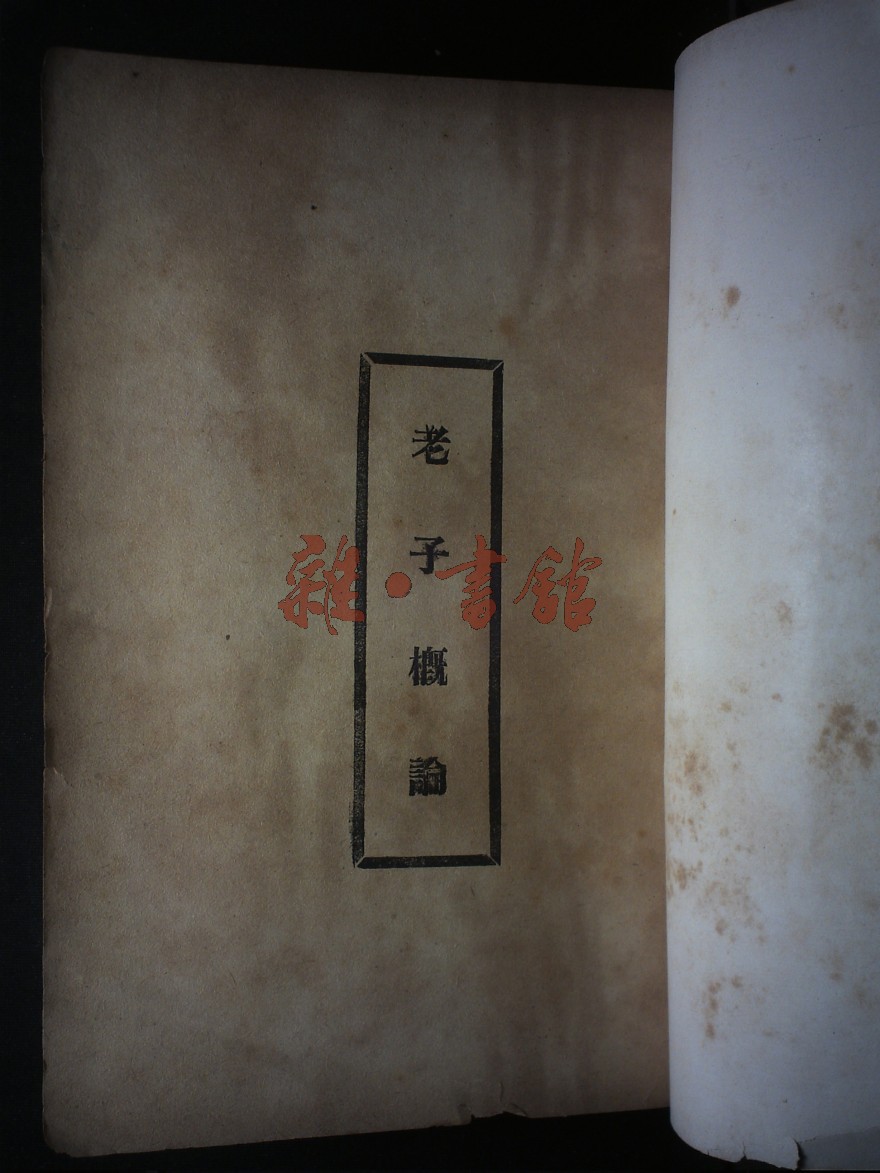 老子概論
雜·書館